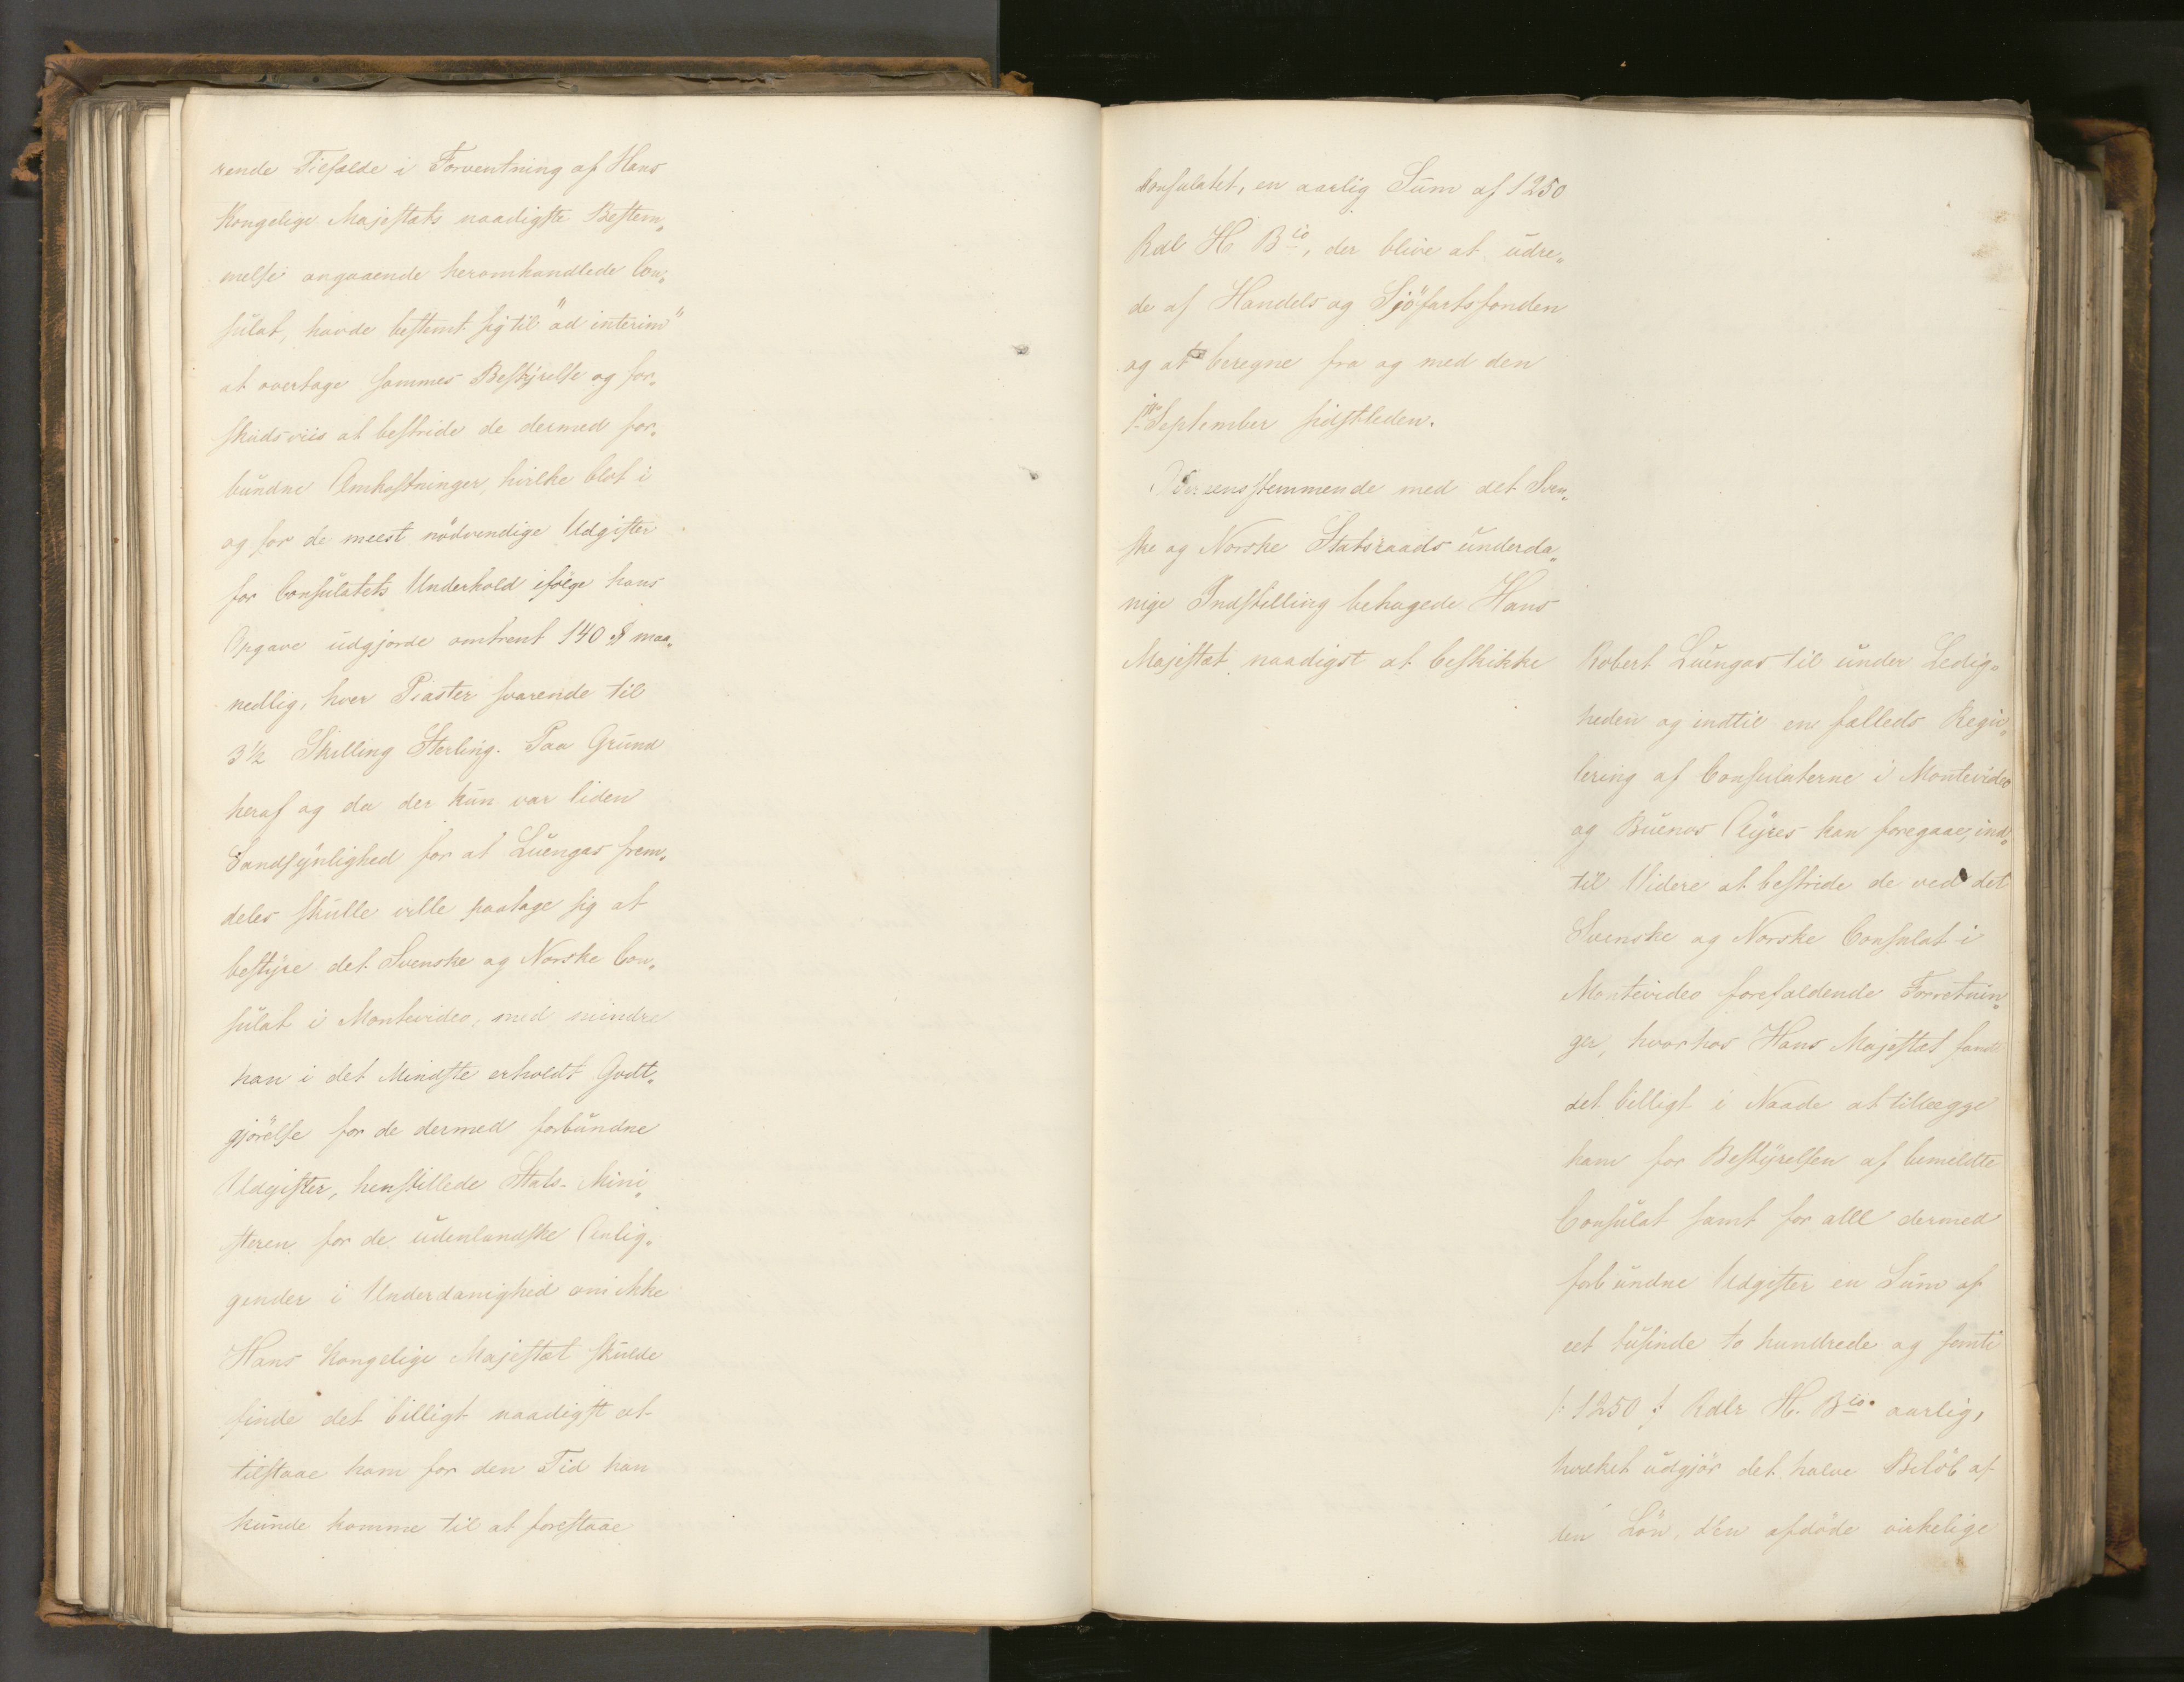 rende Tilfælde i Forventning af Hans
Kongelige Majestæts naadigste Bestem„
melse angaaende heromhandlede Con„
sulat, havde bestemt sig til "ad interim"
at overtage sammes Bestyrelse og for„
skudsviis at bestride de dermed for„
bundne Omkostninger, hvilke blot i
og for de meest nödvendige Udgifter
for Consulatets Underhold ifölge hans
Opgave udgjorde omtrent 140 $ maa„
nedlig, hver Piaster svarende til
3 1/2 Skilling Sterling. Paa Grund
heraf og da der kun var liden
Sandsynlighed for at Luengas frem„
deles skulle ville paatage sig at
bestyre det Svenske og Norske Con„
sulat i Montevideo, med mindre
han i det Mindste erholdt Godt„
gjörelse for de dermed forbundne
Udgifter, henstillede Stats-Mini„
steren for de udenlandske Anlig„
gender i Underdanighed om ikke
Hans Kongelige Majestæt skulde
finde det billigt naadigst at
tilstaae ham for den Tid han
kunde komme til at forestaae
Consulatet, en aarlig Sum af 1250
Rdl H. Bco, der blive at udre„
de af Handels og Sjöfartsfonden
og at beregne fra og med den
1ste September sidstleden.
Overeensstemmende med det Sven„
ske og Norske Statsraads underda„
nige Indstilling behagede Hans
Majestæt naadigst at beskikke
Robert Luengas til under Ledig„
heden og indtil en fælleds Regu„
lering af Consulaterne i Montevideo
og Buenos Ayres kan foregaae, ind„
til Videre at bestride de ved det
Svenske og Norske Consulat i
Montevideo forefaldende Forretnin„
ger, hvorhos Hans Majestæt fandt
det billigt i Naade at tillægge
ham for Bestyrelsen af bemeldte
Consulat samt for alle dermed
forbundne Udgifter en Sum af
eet tusinde to hundrede og femti
/: 1250 :/ Rdlr H. Bco aarlig,
hvilket udgjör det halve Belöb af
den Lön, den afdöde virkelige